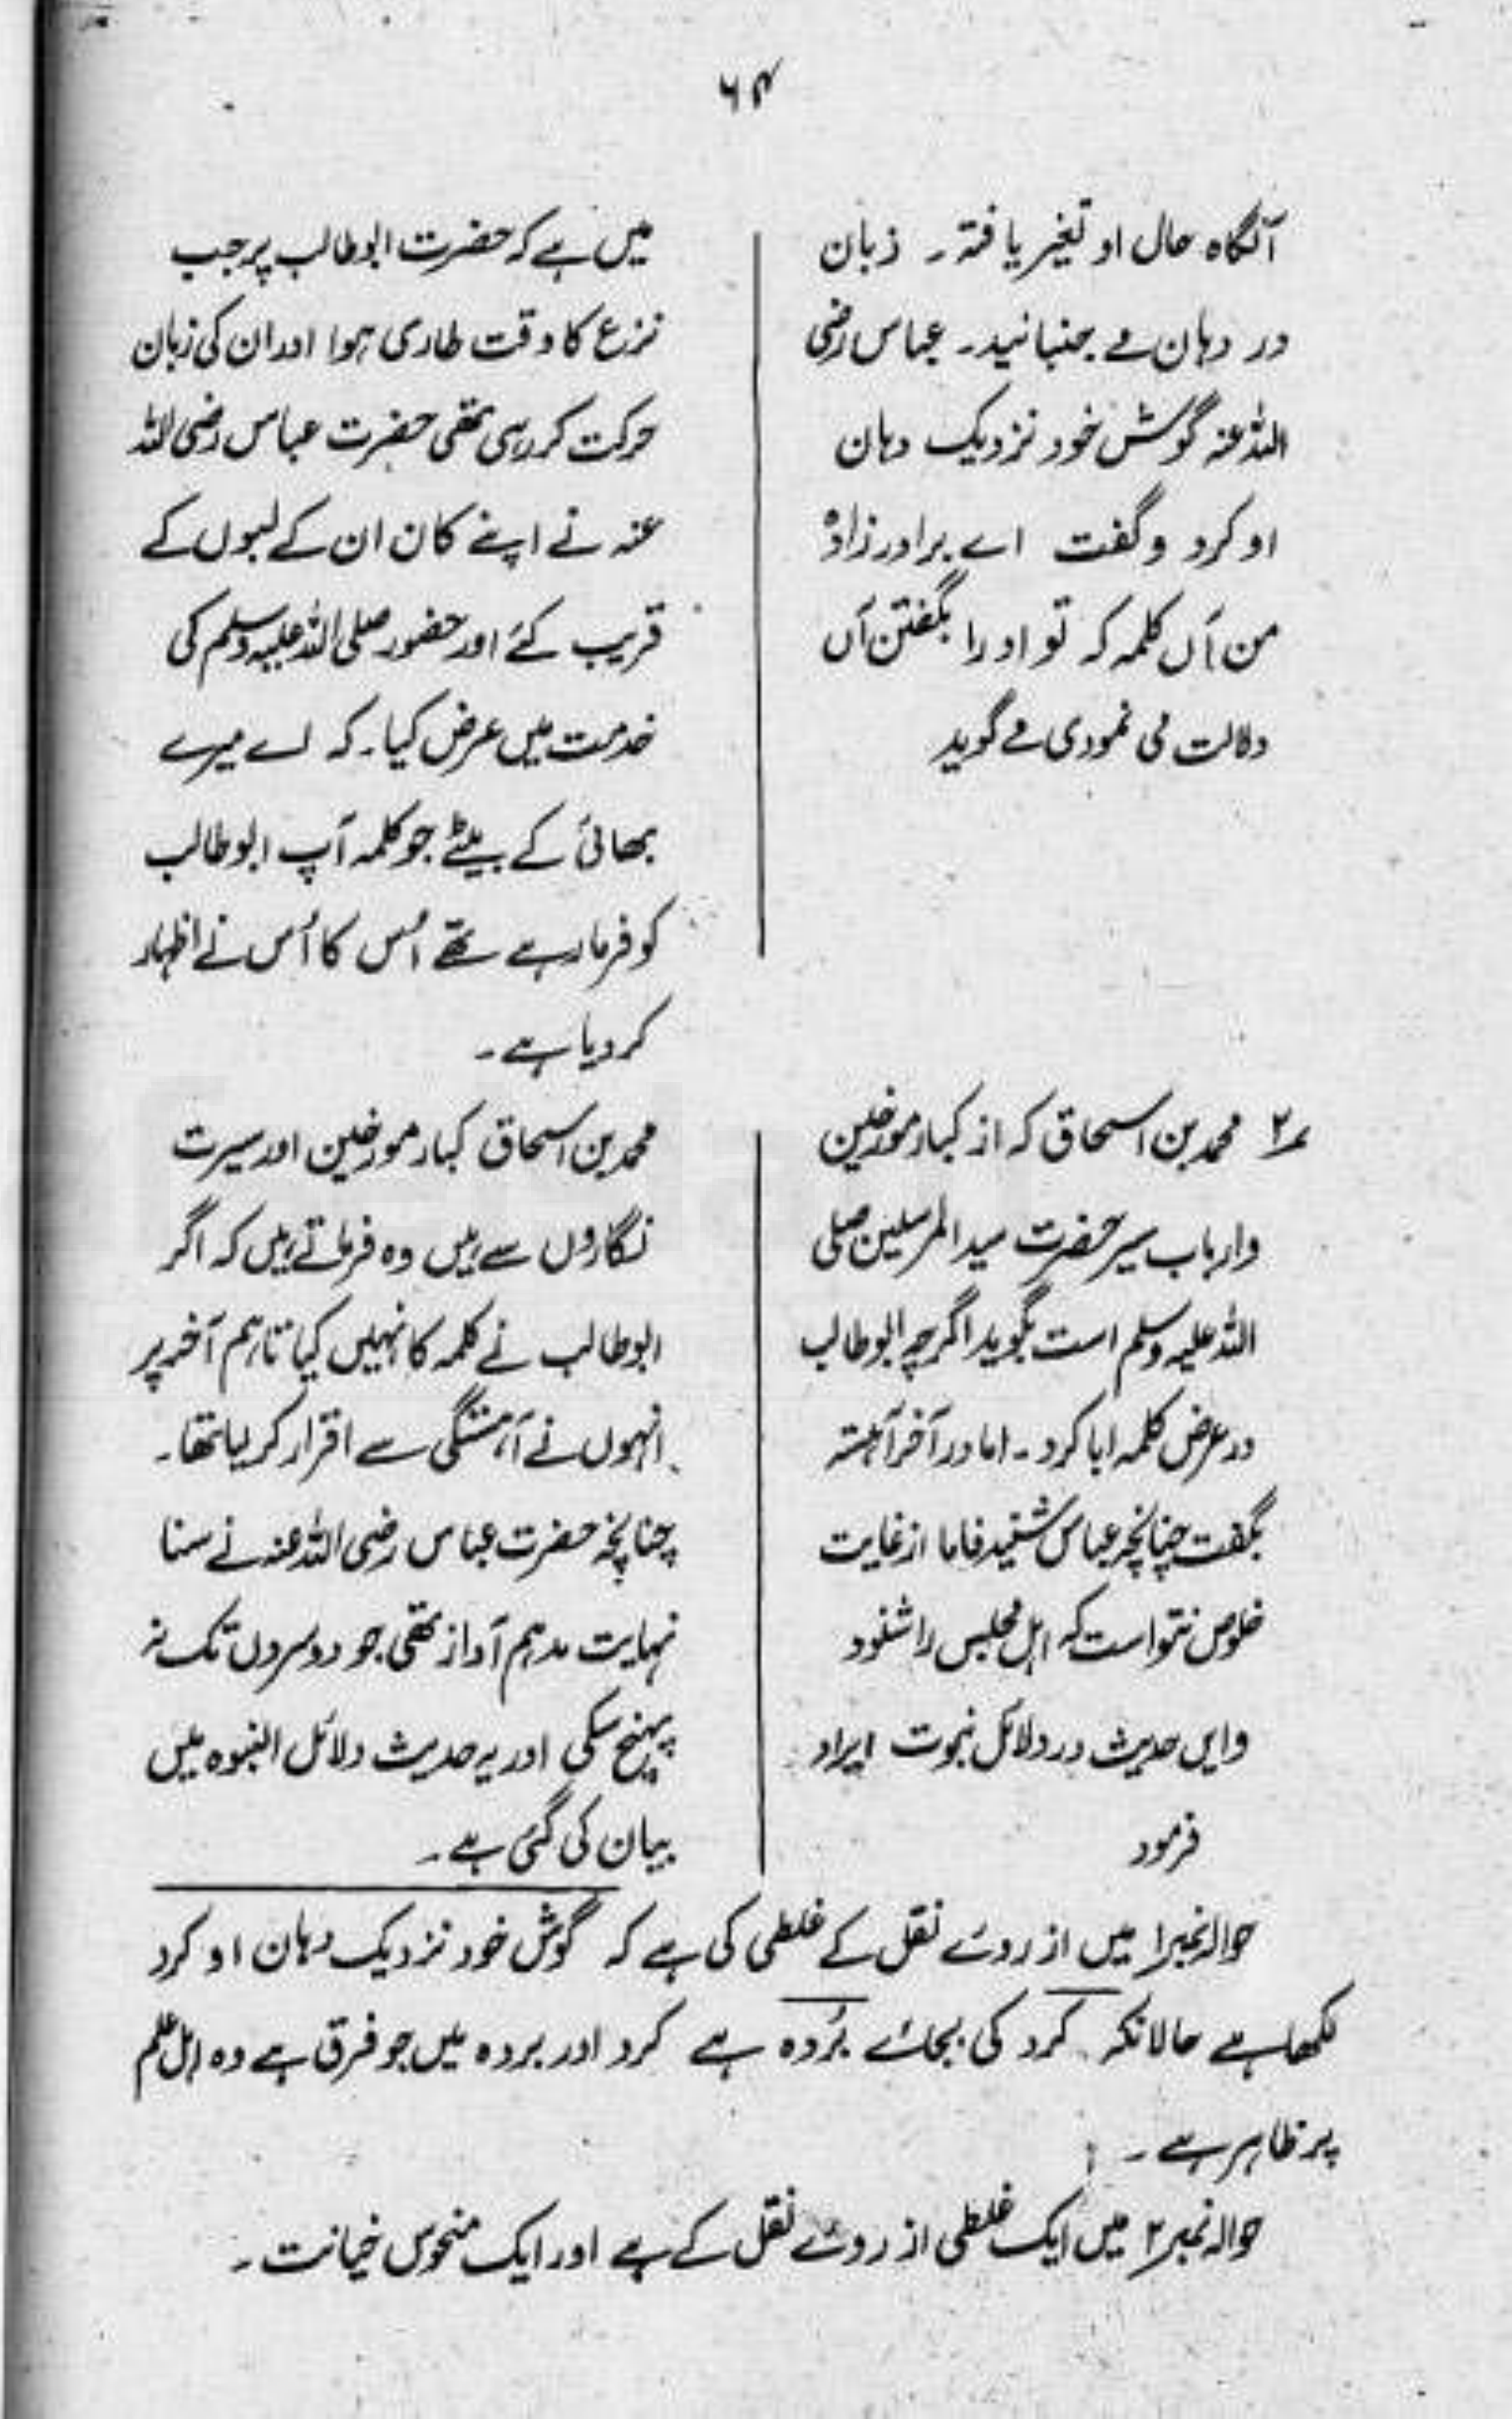 ۶۴
آنگاہ حال او تغیر یافتہ ۔ زبان
در دہان مے بجنبانید ۔ عباس رضی
اللہ عنہ گوش خود نزدیک دہان
او کرد و گفت اے برادر زادہ
من آں کلمہ کہ تو او را بگفتن آں
دلالت می نمودی مے گوید
میں ہے کہ حضرت ابو طالب پر جب
نزع کا وقت طاری ہوا اور ان کی زبان
حرکت کر رہی تھی حضرت عباس رضی اللہ
عنہ نے اپنے کان ان کے لبوں کے
قریب کئے اور حضور صلی اللہ علیہ وسلم کی
خدمت میں عرض کیا ۔ کہ اے میرے
بھائی کے بیٹے جو کلمہ آپ ابو طالب
کو فرما رہے تھے اُس کا اُس نے اظہار
کر دیا ہے ۔
۲؍ محمد بن اسحاق کہ از کبار مورخین
و ارباب سیر حضرت سید المرسلین صلی
اللہ علیہ وسلم است بگوید اگرچہ ابو طالب
در عرض کلمہ ابا کرد ۔ اما در آخر آہستہ
بگفت چنانچہ عباس شنید فاما از غایت
خلوص نتواست کہ اہل مجلس را شنود
و ایں حدیث در دلائل نبوت ایراد
فرمود
محمد بن اسحاق کبار مورخین اور سیرت
نگاروں سے ہیں وہ فرماتے ہیں کہ اگر
ابو طالب نے کلمہ کا نہیں کیا تاہم آخر پر
انہوں نے آہستگی سے اقرار کر لیا تھا ۔
چنانچہ حضرت عباس رضی اللہ عنہ نے سنا
نہایت مدہم آواز تھی جو دوسروں تک نہ
پہنچ سکی اور یہ حدیث دلائل النبوہ میں
بیان کی گئی ہے ۔
حوالہ نمبر۱ میں از روئے نقل کے غلطی کی ہے کہ گوش خود نزدیک دہان او کرد
لکھا ہے حالانکہ کرد کی بجائے بُردہ ہے کرد اور بردہ میں جو فرق ہے وہ اہل علم
پر ظاہر ہے ۔
حوالہ نمبر۲ میں ایک غلطی از روئے نقل کے ہے اور ایک منحوس خیانت ۔